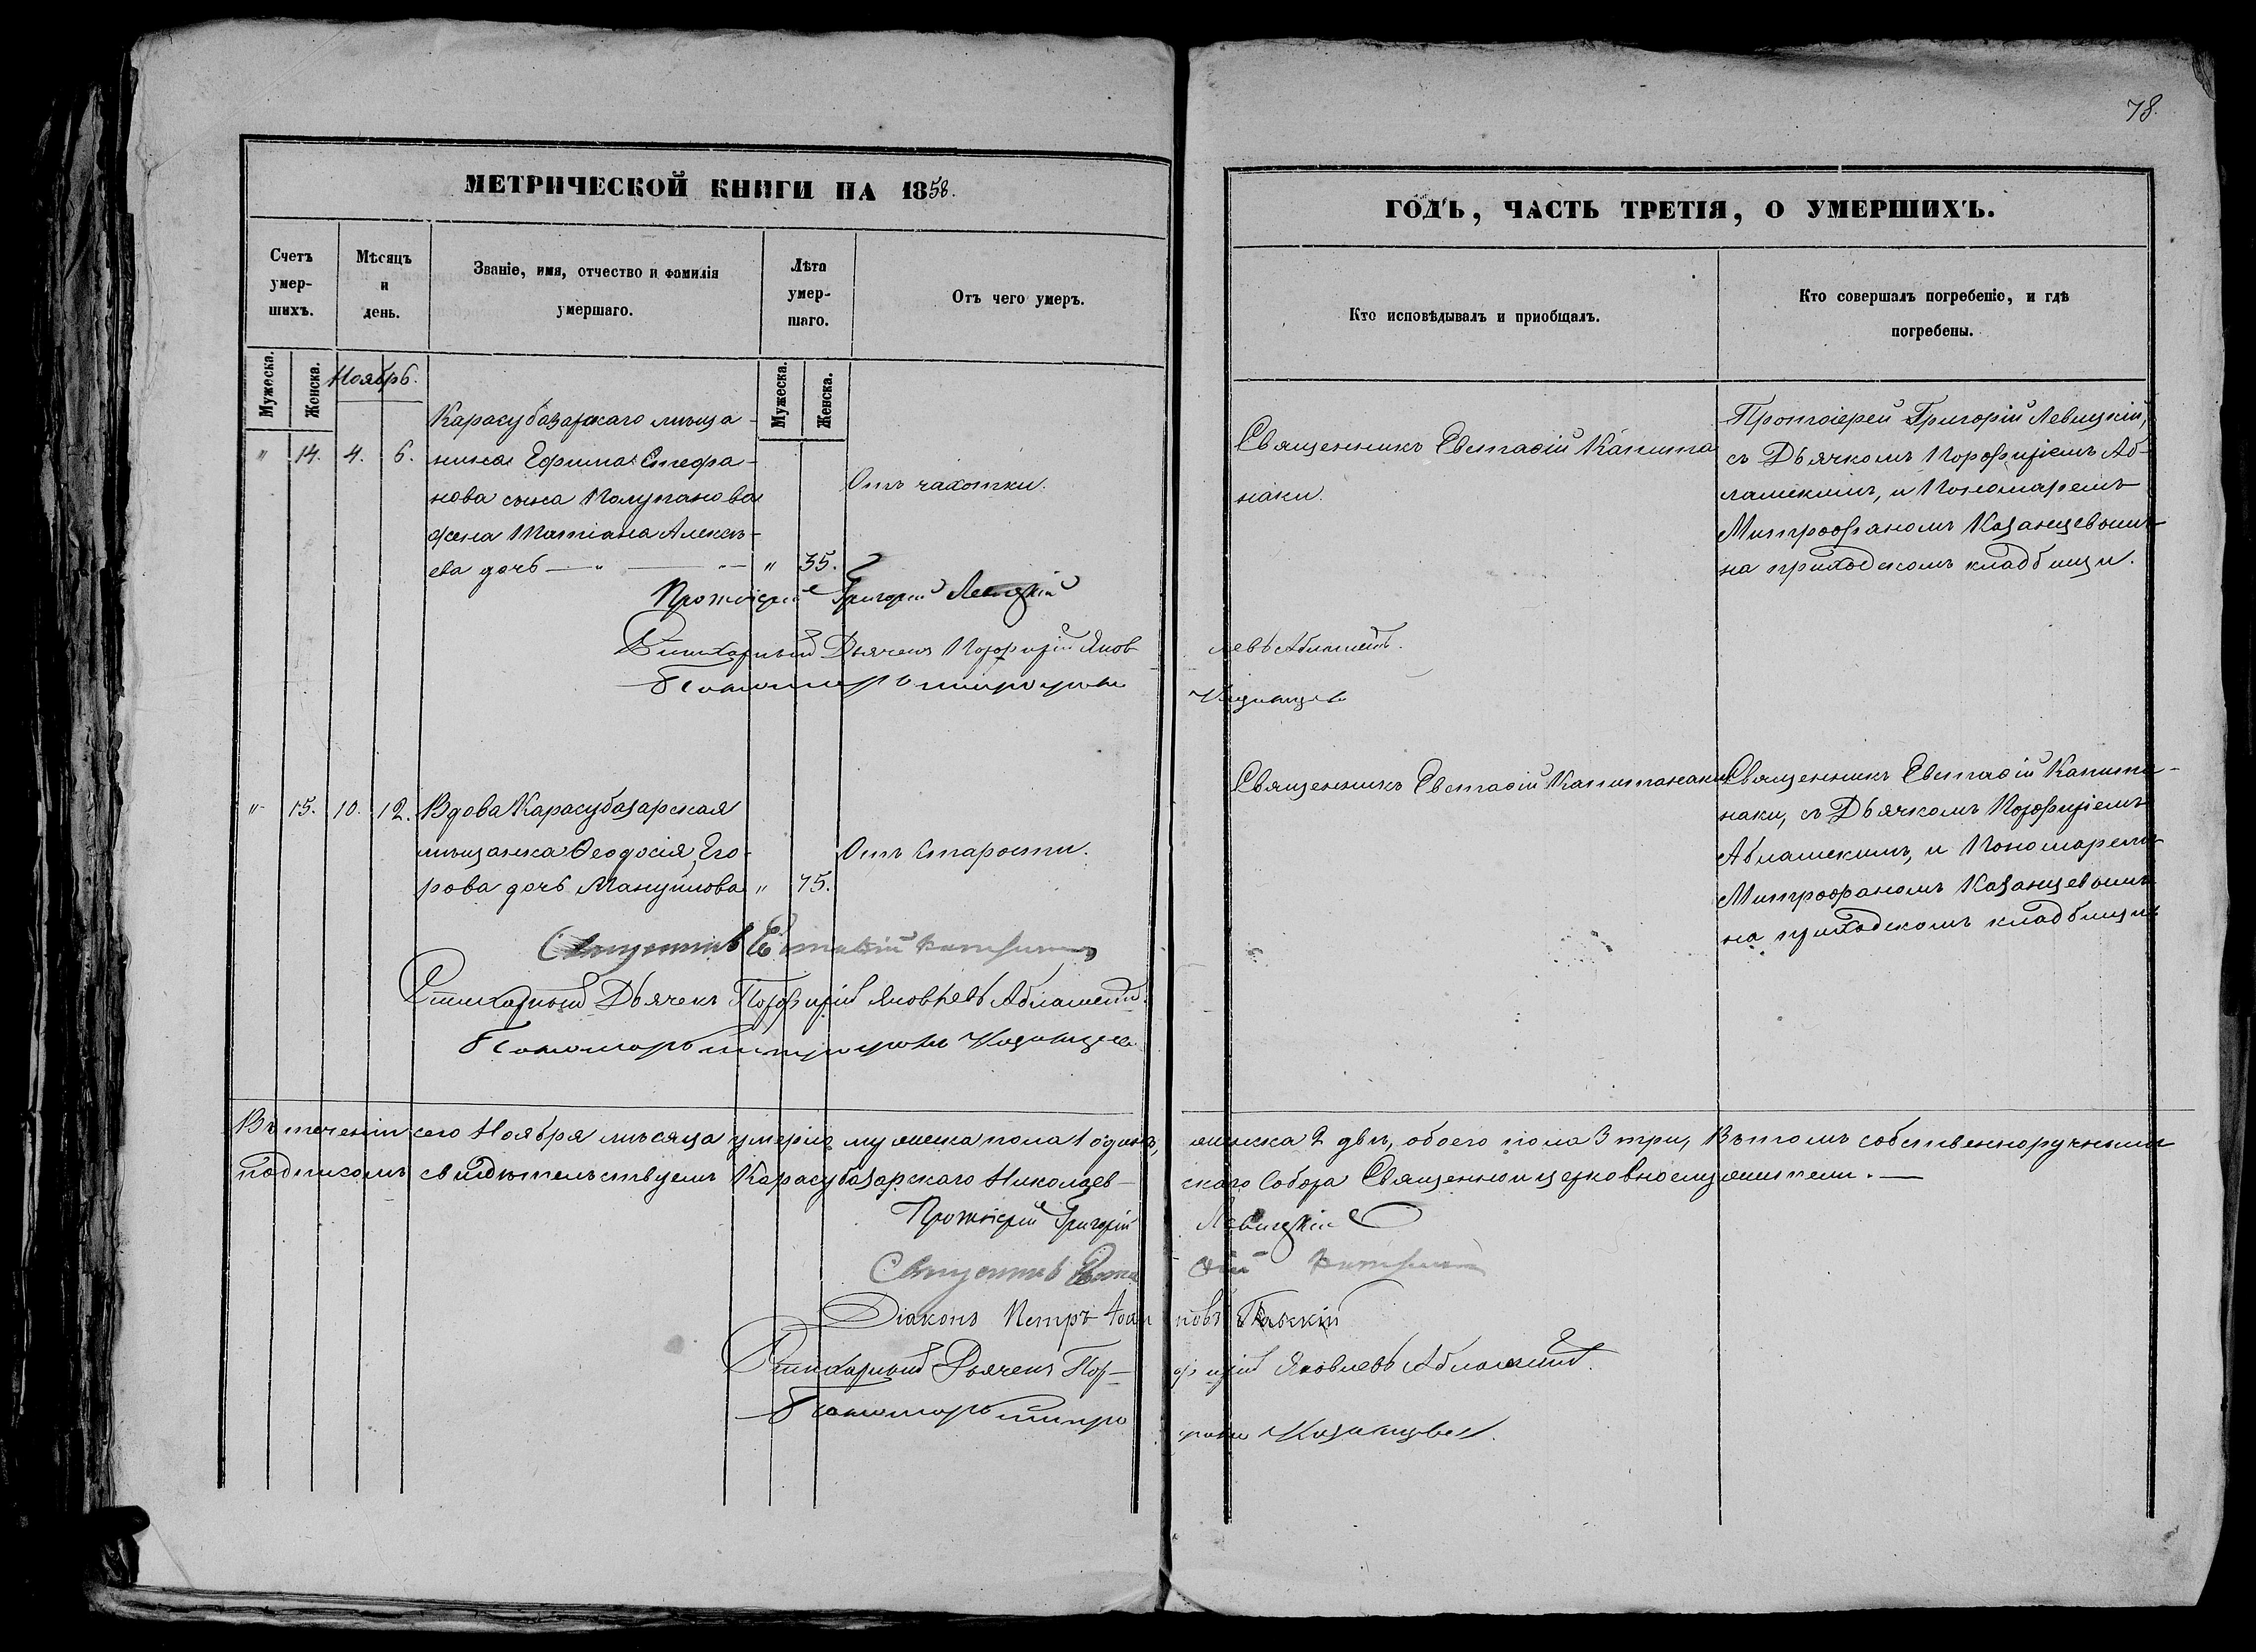 78.
МЕТРИЧЕСКОЙ КНИГИ НА 1858.
Счетъ умер-шихъ.
Мѣсяцъ и день.
Званіе, имя, отчество и фамилія умершаго.
Лѣта умер-шаго.
Отъ чего умеръ.
Мужеска.
Женска.
Ноябрь.
Мужеска.
Женска.
Карасубазарскаго мѣща-
" 14. 4. 6. нина Ефима Стефа-
нова сына Полупанова
жена Татіана Алексѣ-
ева дочь — " — " — " 35.
Отъ чахотки.
Протоіерей Григорій Левицкій
Стихарный Дьячекъ Порфирій Яков
левъ Аблашевъ.
Пономарь Митрофанъ
Казанцевъ
" 15. 10. 12. Вдова Карасубазарская
мѣщанка Ѳеодосія Его-
рова дочь Мануйлова " 75.
Отъ старости.
Священникъ Евстафій
Стихарный Дьячекъ Порфирій Яковлевъ
Пономарь Митрофанъ Казанцевъ
ГОДЪ, ЧАСТЬ ТРЕТІЯ, О УМЕРШИХЪ.
Кто исповѣдывалъ и приобщалъ.
Кто совершалъ погребеніе, и гдѣ
погребены.
Священникъ Евстафій Капита
наки.
Протоіерей Григорій Левицкій,
съ Дьячкомъ Порфиріемъ Аб-
лашскимъ, и Пономаремъ
Митрофаномъ Казанцевымъ
на приходскомъ кладбищи.
Священникъ Евстафій Капитанаки
Священникъ Евстафій Капита-
наки, съ Дьячкомъ Порфиріемъ
Аблашскимъ, и Пономаремъ
Митрофаномъ Казанцевымъ
на приходскомъ кладбищи
Въ теченіи сего Ноября мѣсяца умерло мужеска пола 1 одинъ, женска 2 двѣ, обоего пола 3 три, Въ томъ собственноручнымъ
подписомъ свидѣтельствуемъ Карасубазарскаго Николаев-скаго Собора Священноицерковнослужители. —
Протоіерей Григорій Левицкій
Священникъ
Діаконъ Петръ Іоанновъ
Стихарный Дьячекъ Пор-фирій Яковлевъ
Пономарь Митрофанъ Казанцевъ.